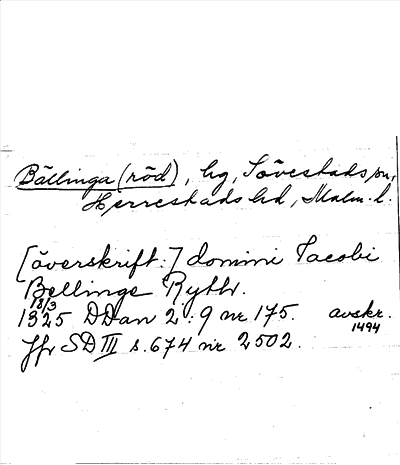 Bällinga (röd), hg, Sövestads sn,
Herrestads hd, Malm. l.
[överskrift:] domini Jacobi
Bellinge Rythr.
18/3
1325 DDan 2:9 nr 175. avskr.
1494
Jfr SD III s. 674 nr 2502.